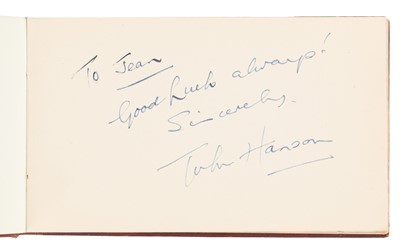 To Jean
Good Luck always!
Sincerely,
John Hanson